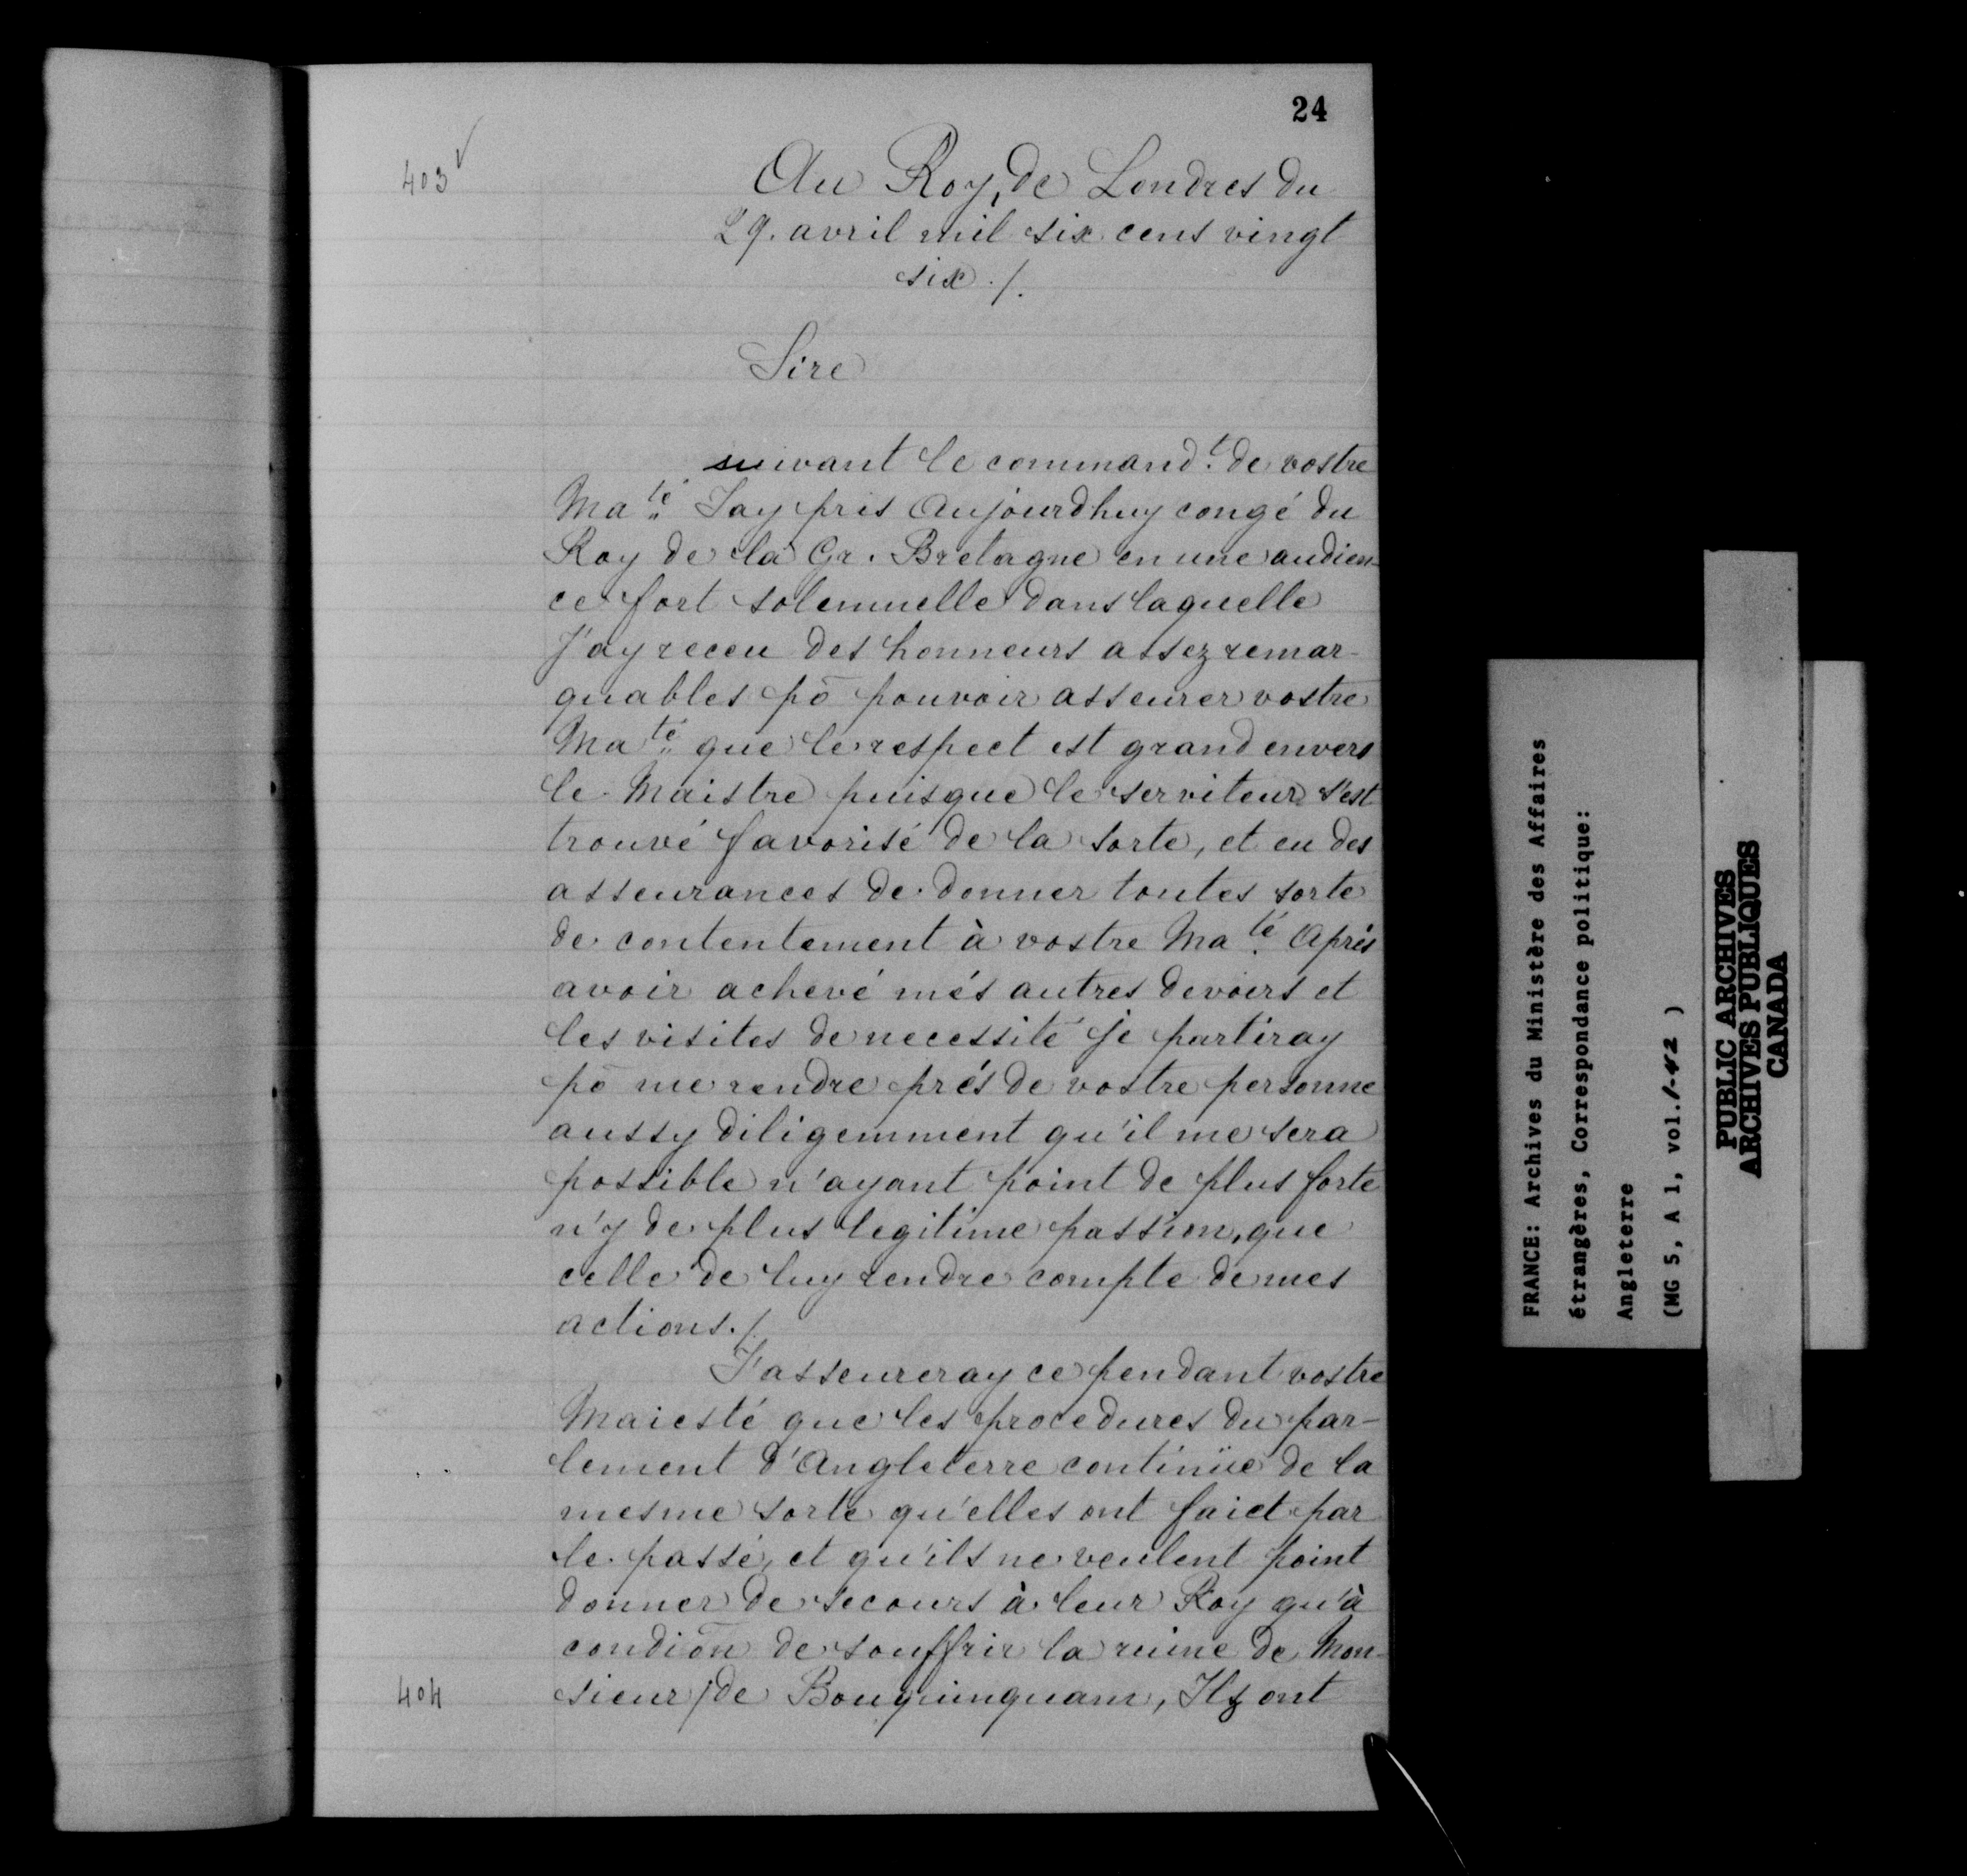 24
403
Au Roy, de Londres du
29. avril mil six cens vingt
six ./.
Sire
suivant le command.t de vostre
Ma.té J'ay pris Aujourdhuy congé du
Roy de la Gr. Bretagne en une audien-
ce fort solemnelle dans laquelle
J'ay receu des honneurs assez remar-
quables pō pouvoir asseurer vostre
Ma.té que le respect est grand envers
le Maistre puisque le serviteur s'est
trouvé favorisé de la sorte, et eu des
asseurances de donner toutes sorte
de contentement à vostre Ma.té Aprés
avoir achevé més autres devoirs et
les visites de necessité je partiray
pō me rendre prés de vostre personne
aussy diligemment qu'il me sera
possible n'ayant point de plus forte
n'y de plus legitime passion, que
celle de luy rendre compte de mes
actions./.
J'asseureray ce pendant vostre
Maiesté que les procedures du par-
lement d'Angleterre continüe de la
mesme sorte qu'elles ont faict par
le passé, et qu'ils ne veulent point
donner de secours à leur Roy qu'à
condiōn de souffrir la ruine de Mon-
404
sieur / de Bouquinquam, Ilz ont
FRANCE: Archives du Ministère des Affaires
étrangères, Correspondance politique:
Angleterre
(MG 5, A 1, vol. 1-42 )
PUBLIC ARCHIVES
ARCHIVES PUBLIQUES
CANADA